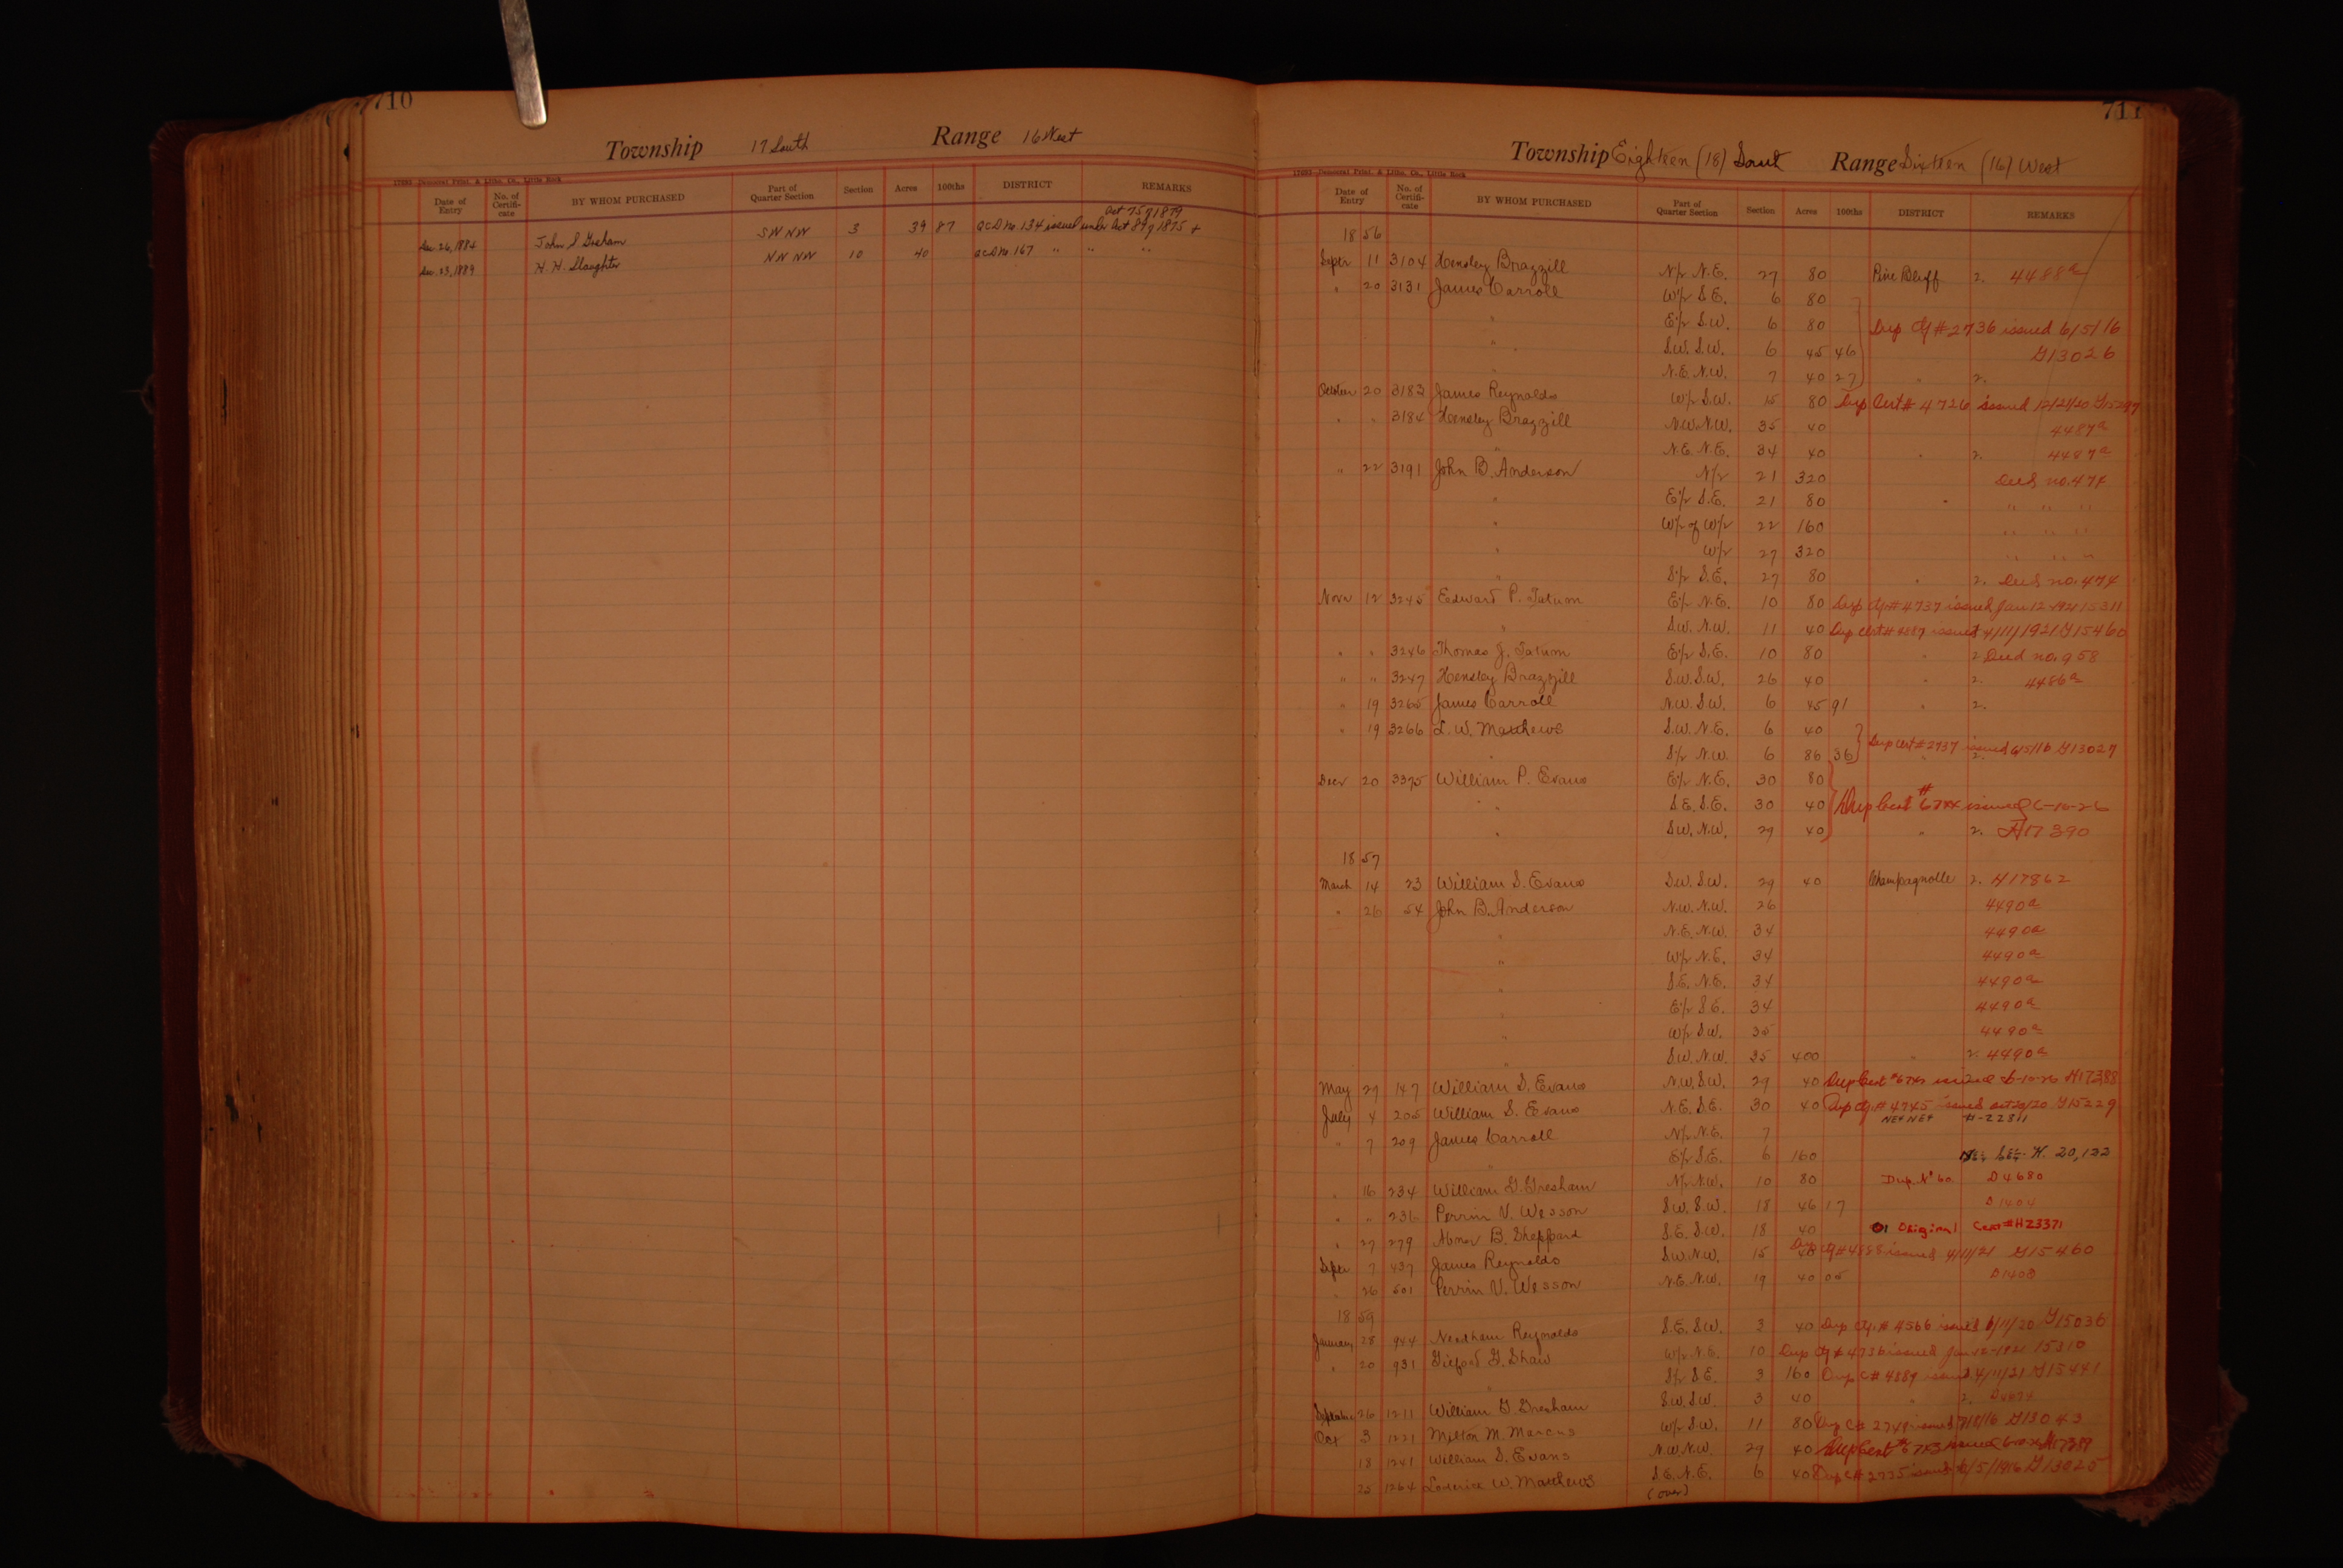 710
Township 17 South Range 16 West
17693 Democrat Print. & Litho. Co., Little Rock
Date of Entry No. of Certifi-cate BY WHOM PURCHASED Part of Quarter Section Section Acres 100ths DISTRICT REMARKS
Act 75 of 1879
Dec 26, 1884 John S Gresham SW NW 3 39 87 QCD No. 134 issued under Act 89 of 1875 +
Dec. 23, 1889 H. H. Slaughter NW NW 10 40 QCD No 167 " " "
711
Township Eighteen (18) South Range Sixteen (16) West
17693 Democrat Print. & Litho. Co., Little Rock
Date of Entry No. of Certifi-cate BY WHOM PURCHASED Part of Quarter Section Section Acres 100ths DISTRICT REMARKS
1856
Septr 11 3104 Hensley Brazzill N/2 N.E. 27 80 Pine Bluff 2. 4488a
" 20 3131 James Carroll W/2 S.E. 6 80
" E/2 S.W. 6 80 Dup Cf # 2736 issued 6/5/16
" S.W. S.W. 6 45 46 G13026
" N.E. N.W. 7 40 27 " 2.
October 20 3183 James Reynolds W/2 S.W. 15 80 Dup Cert # 4726 issued 12/21/20 G15297
" " 3184 Hensley Brazzill N.W. N.W. 35 40 4487a
" N.E. N.E. 34 40 " 2. 4487a
" 22 3191 John B. Anderson N/2 21 320 Deed no. 474
" E/2 S.E. 21 80 " " " "
" W/2 of W/2 22 160 " " "
" W/2 27 320 " " "
" S/2 S.E. 27 80 " 2. Deed no. 474
Novr 12 3245 Edward P. Tatum E/2 N.E. 10 80 Dup Cf # 4737 issued Jan 12-1921 15311
" S.W. N.W. 11 40 Dup Cert # 4887 issued 4/11/1921 G15460
" " 3246 Thomas J. Tatum E/2 S.E. 10 80 " 2 Deed no. 958
" " 3247 Hensley Brazzill S.W. S.W. 26 40 " 2. 4486a
" 19 3265 James Carroll N.W. S.W. 6 45 91 " 2.
" 19 3266 L. W. Matthews S.W. N.E. 6 40
" S/2 N.W. 6 86 36 Dup Cert # 2737 issued 6/5/16 G13027
Decr 20 3375 William P. Evans E/2 N.E. 30 80
" S.E. S.E. 30 40 Dup Cert # issued 6-10-26
" S.W. N.W. 29 40 " 2. H17390
1857
March 14 23 William S. Evans S.W. S.W. 29 40 Champagnolle 2. H17862
" 26 54 John B. Anderson N.W. N.W. 26 4490a
" N.E. N.W. 34 4490a
" W/2 N.E. 34 4490a
" S.E. N.E. 34 4490a
" E/2 S.E. 34 4490a
" W/2 S.W. 35 4490a
" S.W. N.W. 35 400 " 2. 4490a
May 29 147 William S. Evans N.W. S.W. 29 40 Dup Cert # issued 6-10-26 H17388
July 4 205 William S. Evans N.E. S.E. 30 40 Dup Cf. # 4745 issued G15229
NE4 NE4 H-22811
" 7 209 James Carroll N/2 N.E. 7
" E/2 S.E. 6 160 H. 20,122
" 16 234 William G. Gresham N/2 N.W. 10 80 Dup. No 60 D4680
" " 236 Perrin V. Wesson S.W. S.W. 18 46 17 D1404
" 27 279 Abner B. Sheppard S.E. S.W. 18 40 Original Cert # H23371
Septr 7 437 James Reynolds S.W. N.W. 15 40 Dup Cf # 4888 issued 4/11/21 G15460
" 26 501 Perrin V. Wesson N.E. N.W. 19 40 05 D1403
1859
January 28 944 Needham Reynolds S.E. S.W. 3 40 Dup Cf. # 4566 issued 6/11/20 G15036
" 20 931 G. Shaw W/2 N.E. 10 Dup Cf # 4736 issued Jan 12-1921 15310
" S/2 S.E. 3 160 Dup C# 4889 issued 4/11/21 G15441
September 26 1211 William G. Gresham S.W. S.W. 3 40 " 2.
Oct 3 1221 Milton M. Marcus W/2 S.W. 11 80 Dup C# 2748 issued G13043
18 1241 William S. Evans N.W. N.W. 29 40 Dup Cert # issued H17389
25 1264 Loderick W. Matthews S.E. N.E. 6 40 Dup C# 2735 issued 6/5/1916 G13025
(over)